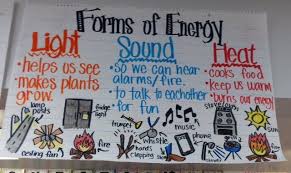 Forms of Energy
Light
• helps us see
• makes plants
grow.
Sound
• So we can hear
alarms/fire.
• to talk to eachother
• for fun
Heat
• cooks food
• keep us warm
• burns our energy
lamp
posts
fridge
light
ceiling fan
fire
trumpet
whistle
hands
clapping
music
phone
fire
sun